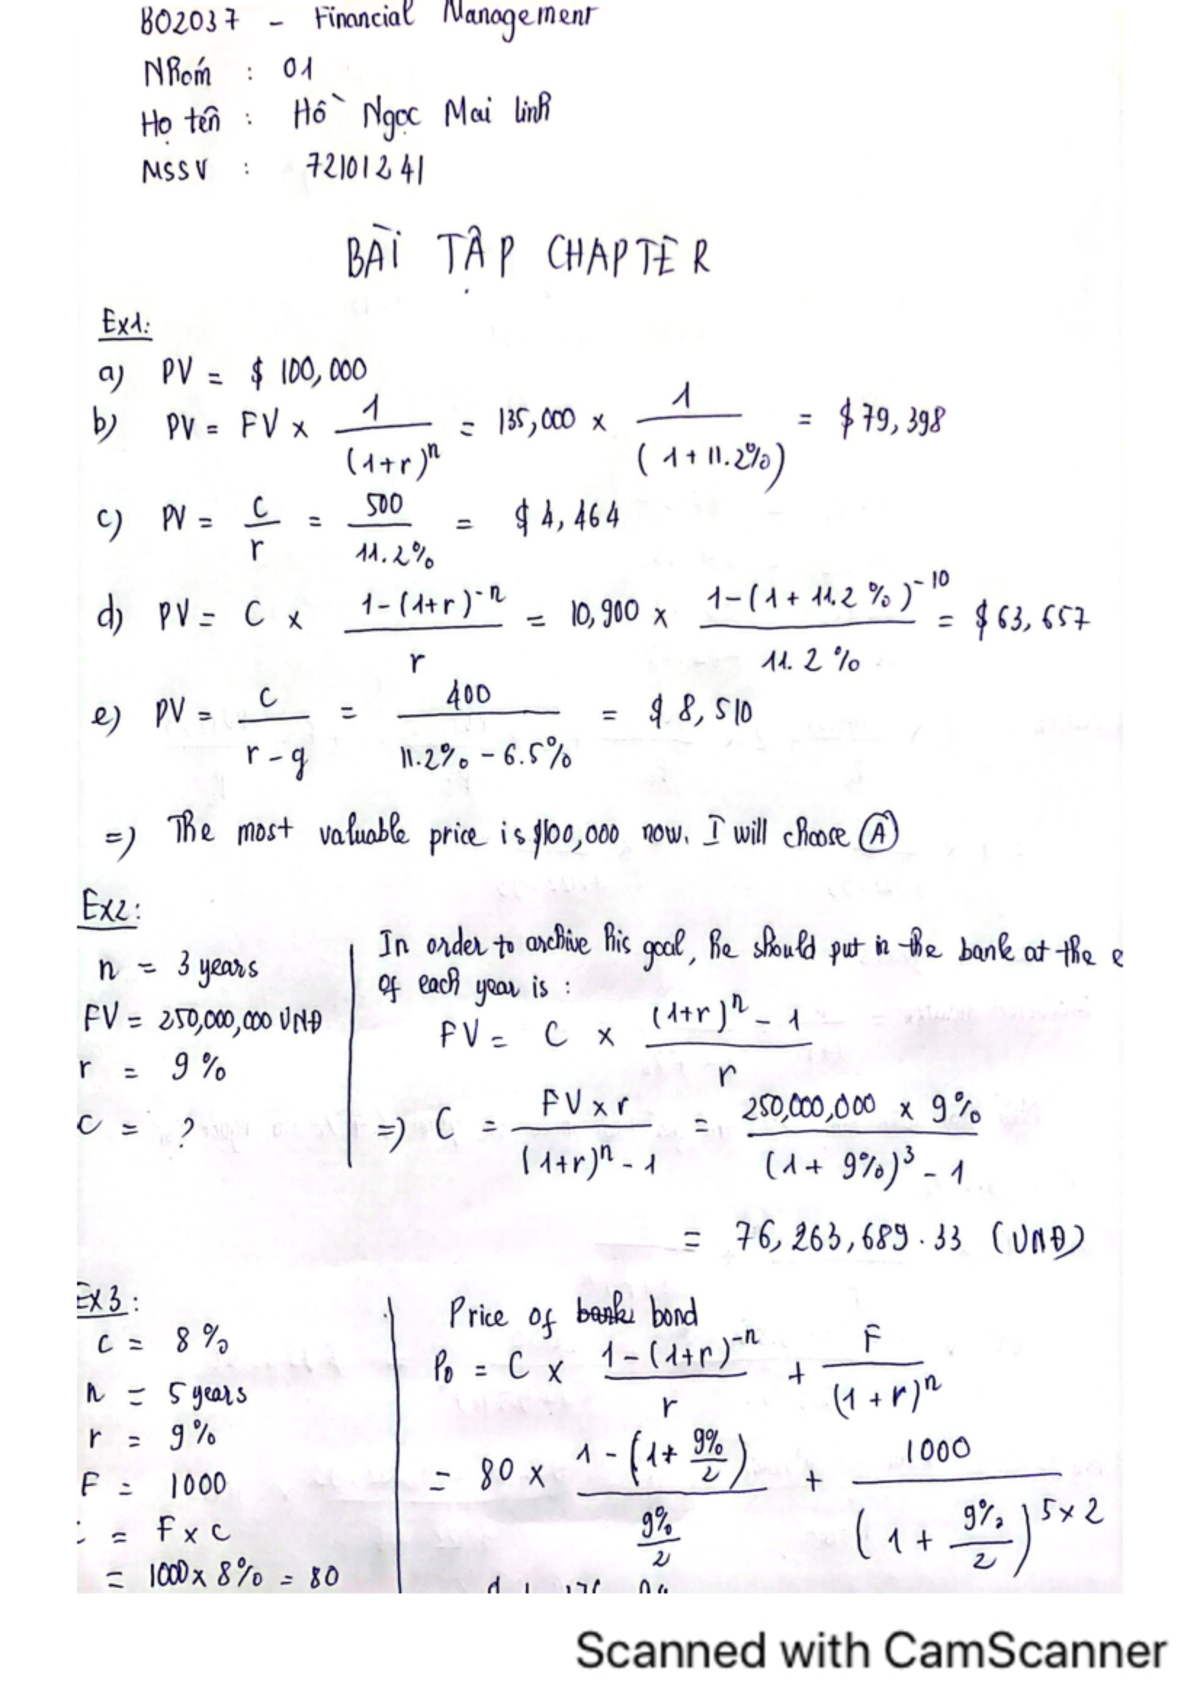 BO2037 - Financial Management
Nhóm : 01
Họ tên : Hồ Ngọc Mai Linh
MSSV : 72101241
BÀI TẬP CHAPTER
Ex1:
a) PV = $ 100,000
b) PV = FV x 1/(1+r)^n = 135,000 x 1/(1+11.2%) = $79,398
c) PV = c/r = 500/11.2% = $4,464
d) PV = C x (1-(1+r)^-n)/r = 10,900 x (1-(1+11.2%)^-10)/11.2% = $63,657
e) PV = c/(r-g) = 400/(11.2%-6.5%) = $8,510
=) The most valuable price is $100,000 now. I will choose (A)
Ex2:
n = 3 years
FV = 250,000,000 VNĐ
r = 9%
C = ?
In order to archive his goal, he should put in the bank at the e
of each year is :
FV = C x ((1+r)^n - 1)/r
=) C = (FV x r)/((1+r)^n - 1) = (250,000,000 x 9%)/((1+9%)^3 - 1)
= 76,263,689.33 (VNĐ)
Ex3:
c = 8%
n = 5 years
r = 9%
F = 1000
= F x c
= 1000 x 8% = 80
Price of bank bond
P0 = C x (1-(1+r)^-n)/r + F/(1+r)^n
= 80 x (1-(1+9%/2))/(9%/2) + 1000/(1+9%/2)^5x2
Scanned with CamScanner